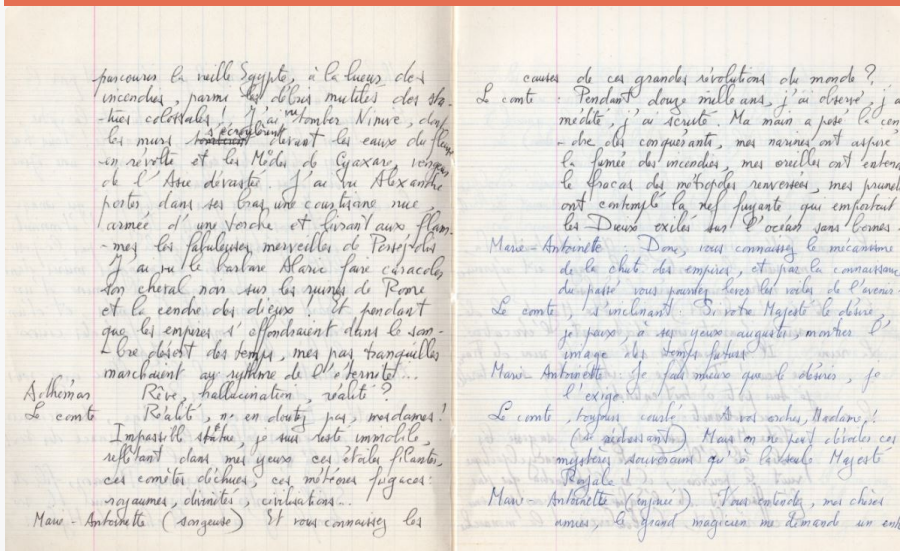 parcourir la vieille Egypte, à la lueur des
incendies, parmi les débris mutilés des sta-
-tues colossales. J'ai vu tomber Ninive, dont
les murs s'écroulèrent devant les eaux du fleuve
en révolte et les Mèdes de Cyaxare, venger
de l'Asie dévastée. J'ai vu Alexandre
porter dans ses bras une courtisane nue,
armée d'une torche et livrant aux flam-
-mes les fabuleuses merveilles de Persépolis
J'ai vu le barbare Alaric faire caracoler
son cheval noir sur les ruines de Rome
et la cendre des dieux ! Et pendant
que les empires s'effondraient dans le som-
-bre désert des temps, mes pas tranquilles
marchaient au rythme de l'éternité...
Adhémar Rêve, hallucination, réalité ?
Le comte Réalité, n'en doutez pas, mesdames !
Impassible statue, je suis resté immobile,
reflétant dans mes yeux ces étoiles filantes,
ces comètes déchues, ces météores fugaces :
royaumes, divinités, civilisations...
Marie-Antoinette (songeuse) Et vous connaissez les
causes de ces grandes révolutions du monde ?
Le comte : Pendant douze mille ans, j'ai observé, j'a
médité, j'ai scruté. Ma main a pesé la cen
-dre des conquérants, mes narines ont aspiré
la fumée des incendies, mes oreilles ont entend
le fracas des métropoles renversées, mes prunel
ont contemplé la nef fuyante qui emportait
les Dieux exilés sur l'océan sans bornes.
Marie-Antoinette : Donc, vous connaissez le mécanisme
de la chute des empires, et par la connaissance
du passé vous pouvez lever les voiles de l'avenir.
Le comte s'inclinant : Si votre Majesté le désire,
je peux, à ses yeux augustes, montrer l'
image des temps futurs
Marie-Antoinette Je fais mieux que le désirer, je
l'exige
Le comte, toujours courbé. A vos ordres, Madame !
(se redressant) Mais on ne peut dévoiler ces
mystères souverains qu'à la seule Majesté
Royale
Marie-Antoinette Vous entendez, mes chères
amies, le grand magicien me demande un ent